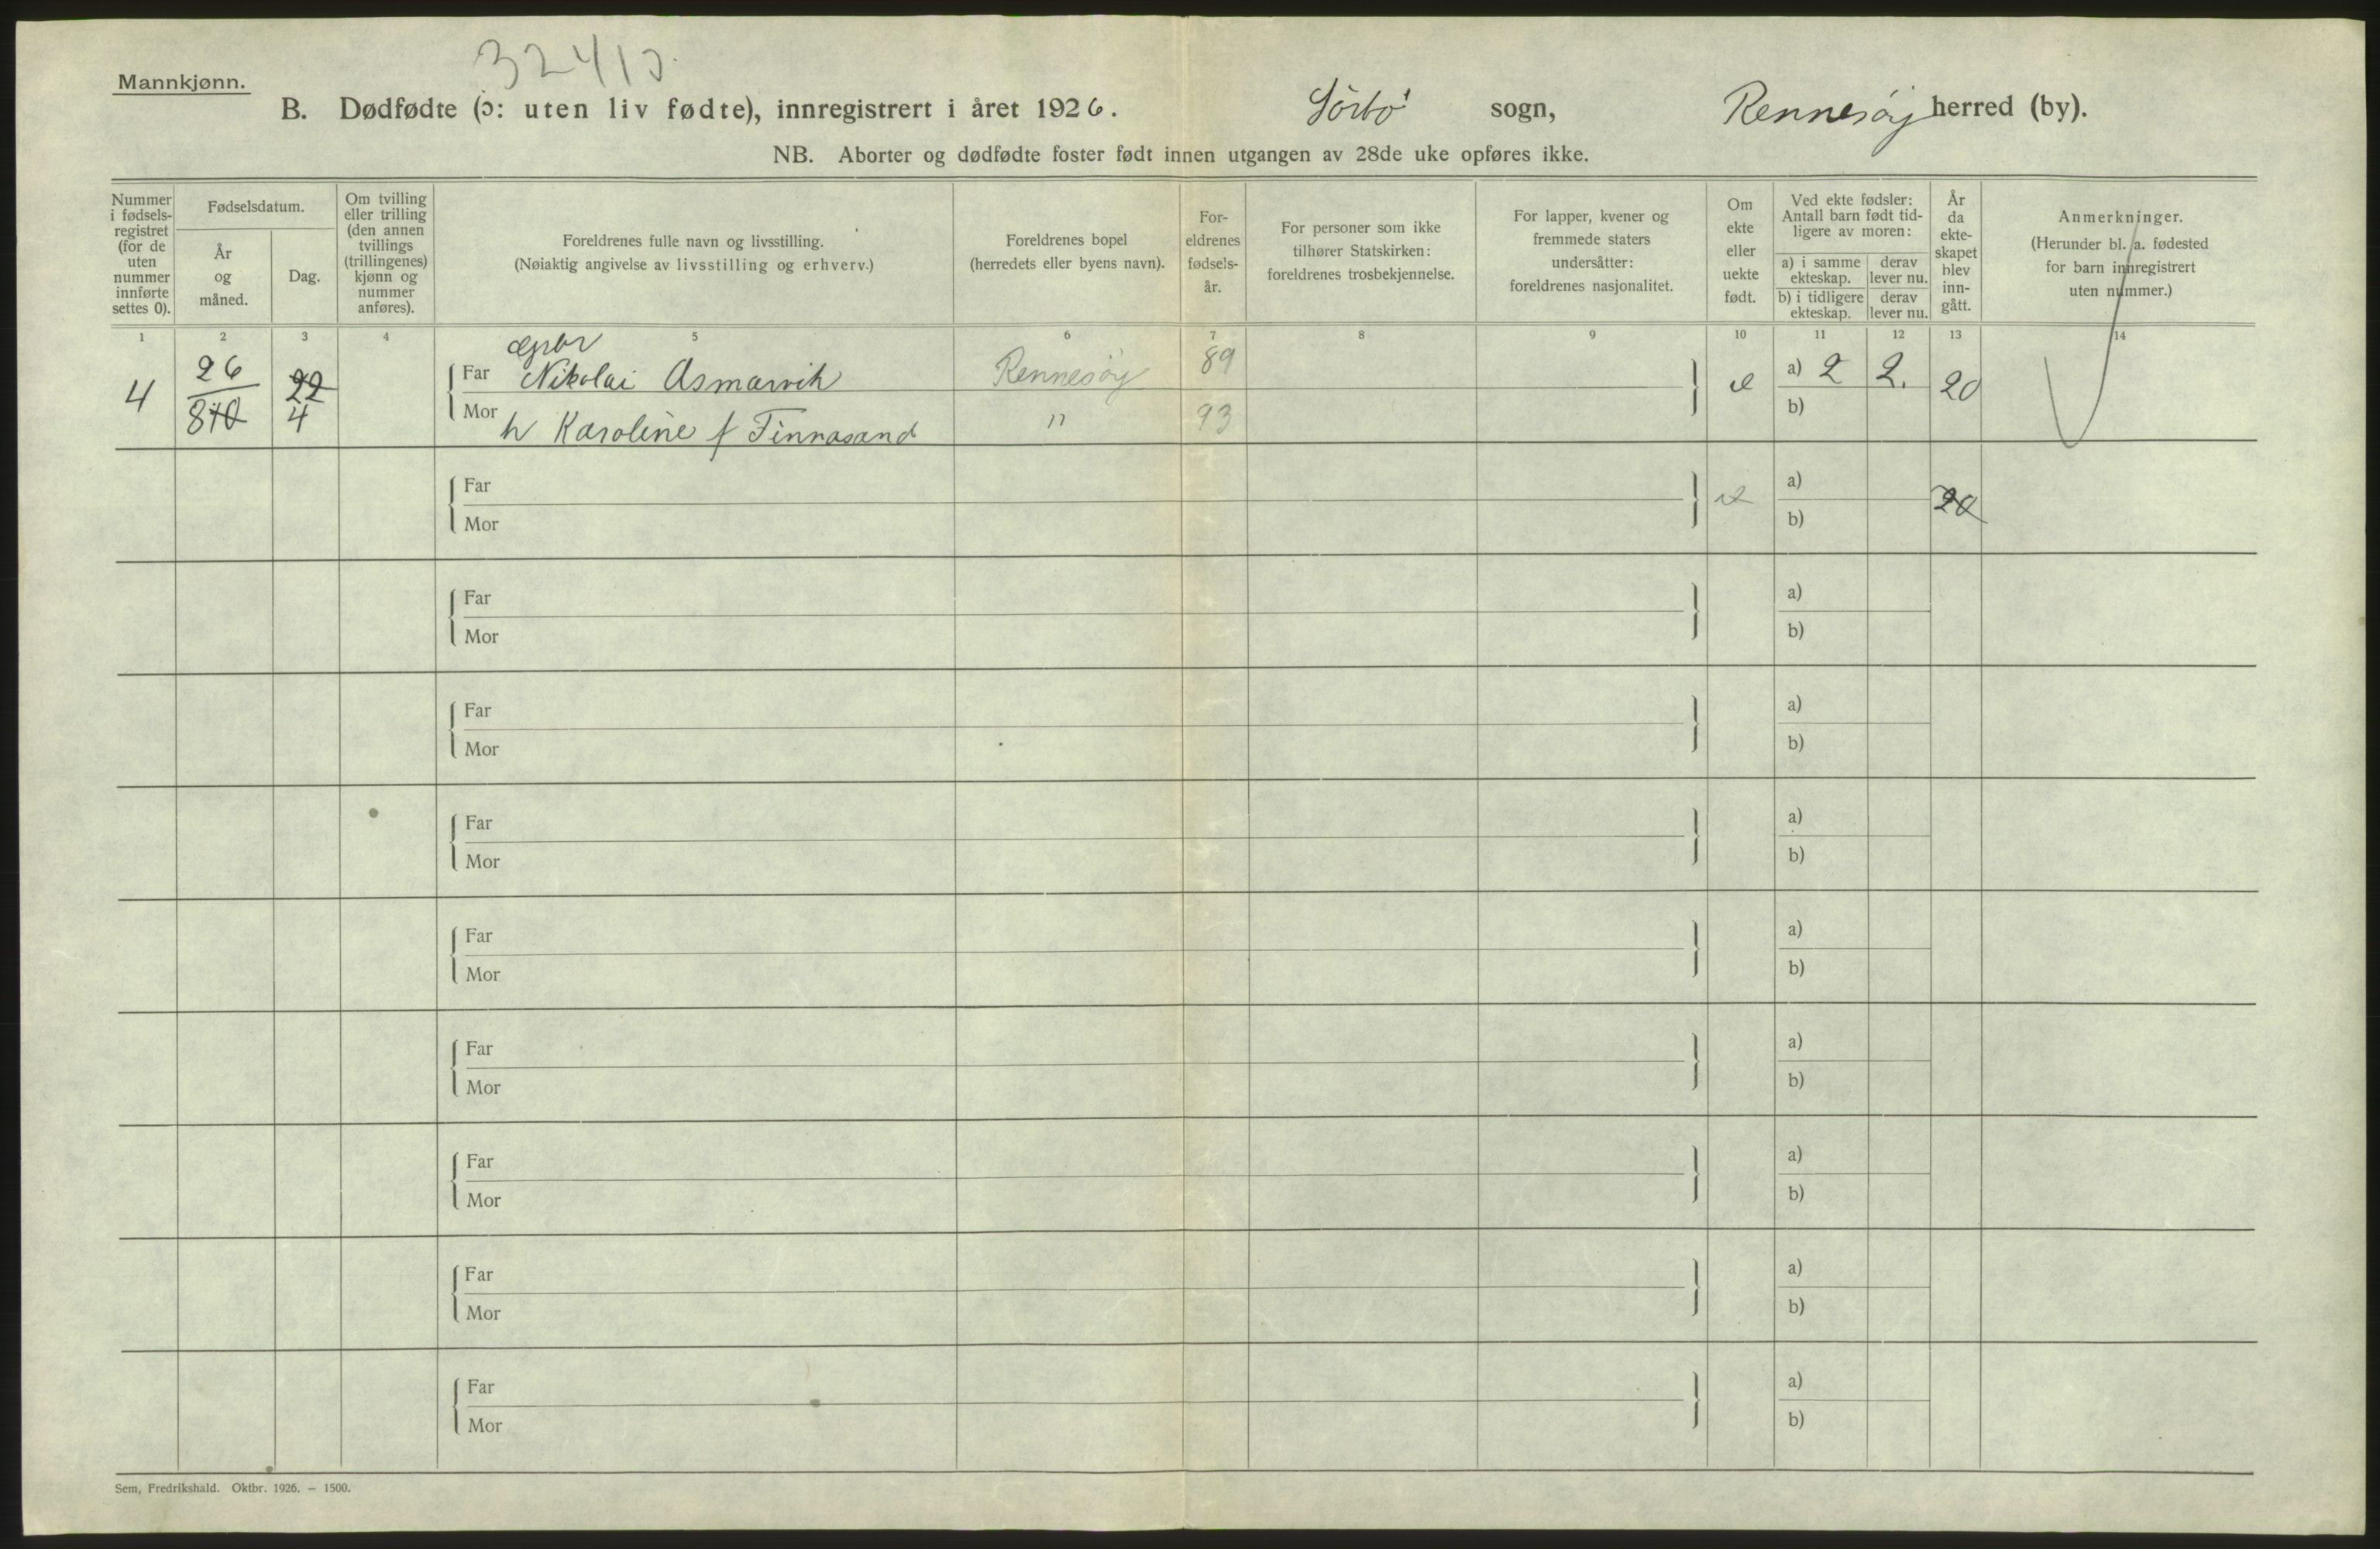 32413.
Mannkjønn.
B. Dødfødte (ɔ: uten liv fødte), innregistrert i året 1926. Sörbö sogn, Rennesöy herred (by).
NB. Aborter og dødfødte foster født innen utgangen av 28de uke opføres ikke.
Nummer i fødsels- registret (for de uten nummer innførte settes 0).
Fødselsdatum.
År og måned.
Dag.
Om tvilling eller trilling (den annen tvillings (trillingenes) kjønn og nummer anføres).
Foreldrenes fulle navn og livsstilling.
(Nøiaktig angivelse av livsstilling og erhverv.)
Foreldrenes bopel
(herredets eller byens navn).
For- eldrenes fødsels- år.
For personer som ikke tilhører Statskirken: foreldrenes trosbekjennelse.
For lapper, kvener og fremmede staters undersåtter: foreldrenes nasjonalitet.
Om ekte eller uekte født.
Ved ekte fødsler: Antall barn født tid- ligere av moren:
a) i samme ekteskap. derav lever nu.
b) i tidligere ekteskap. derav lever nu.
År da ekte- skapet blev inn- gått.
Anmerkninger.
(Herunder bl. a. fødested for barn innregistrert uten nummer.)
1 2 3 4 5 6 7 8 9 10 11 12 13 14
4 26 22 Far Nikolai Asmarvik Rennesöy 89 e a) 2 2. 20
810 4 Mor h Karoline f Finnasand " 93 b)
Far e a) 20
Mor b)
Far a)
Mor b)
Far a)
Mor b)
Far a)
Mor b)
Far a)
Mor b)
Far a)
Mor b)
Far a)
Mor b)
Far a)
Mor b)
Far a)
Mor b)
Sem, Fredrikshald. Oktbr. 1926. – 1500.